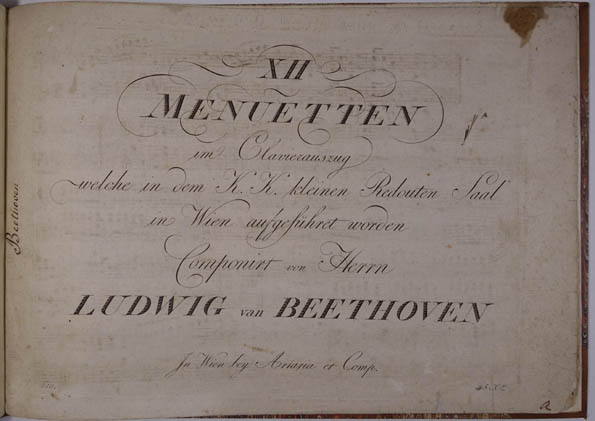 XII
MENUETTEN
im Clavierauszug
welche in dem K. K. kleinen Redouten Saal
in Wien aufgeführet worden
Componirt von Herrn
LUDWIG van BEETHOVEN
In Wien bey Artaria et Comp.
Beethoven